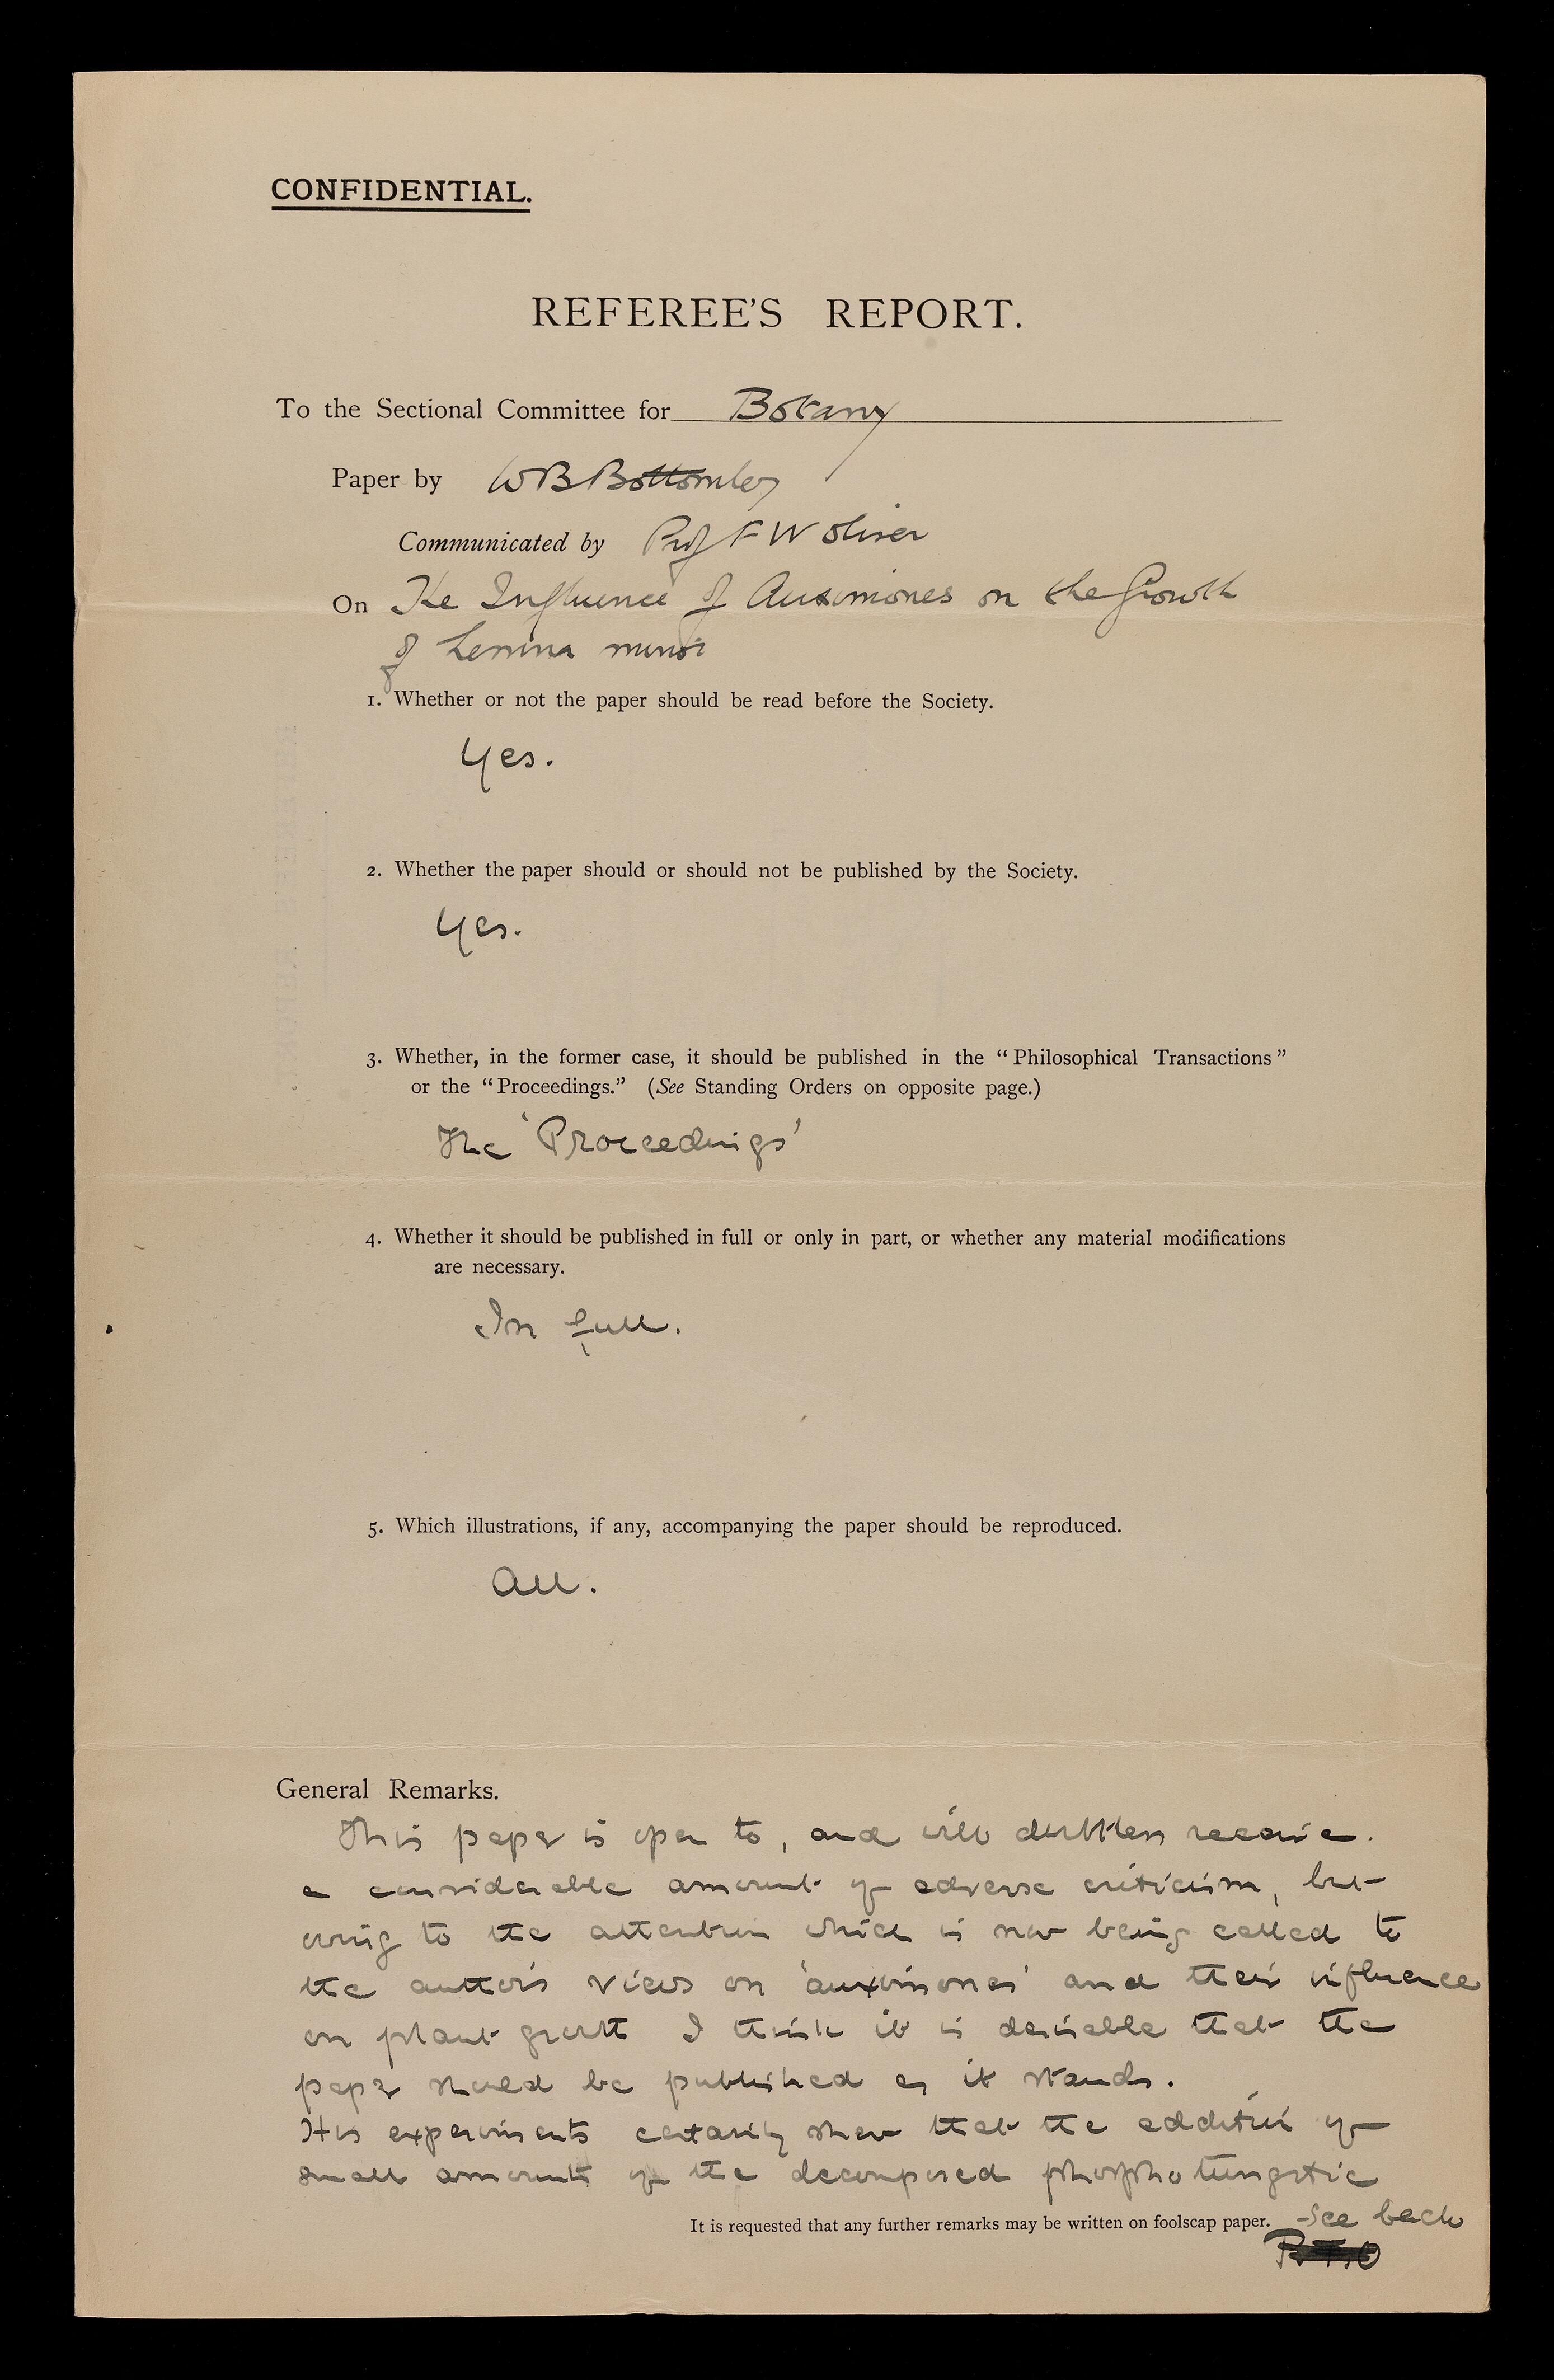 CONFIDENTIAL.
REFEREE'S REPORT.
To the Sectional Committee for Botany
Paper by W B Bottomley
Communicated by Prof F W Oliver
On The Influence of Auximones on the Growth
of Lemna minor
1. Whether or not the paper should be read before the Society.
Yes.
2. Whether the paper should or should not be published by the Society.
Yes.
3. Whether, in the former case, it should be published in the “Philosophical Transactions”
or the “Proceedings.” (See Standing Orders on opposite page.)
The 'Proceedings'
4. Whether it should be published in full or only in part, or whether any material modifications
are necessary.
In full.
5. Which illustrations, if any, accompanying the paper should be reproduced.
All.
General Remarks.
This paper is open to, and will doubtless receive.
a considerable amount of adverse criticism, but
owing to the attention which is now being called to
the author's views on 'auximones' and their influence
on plant growth I think it is desirable that the
paper should be published as it stands.
His experiments certainly show that the addition of
small amounts of the decomposed phosphotungstic
It is requested that any further remarks may be written on foolscap paper. See back